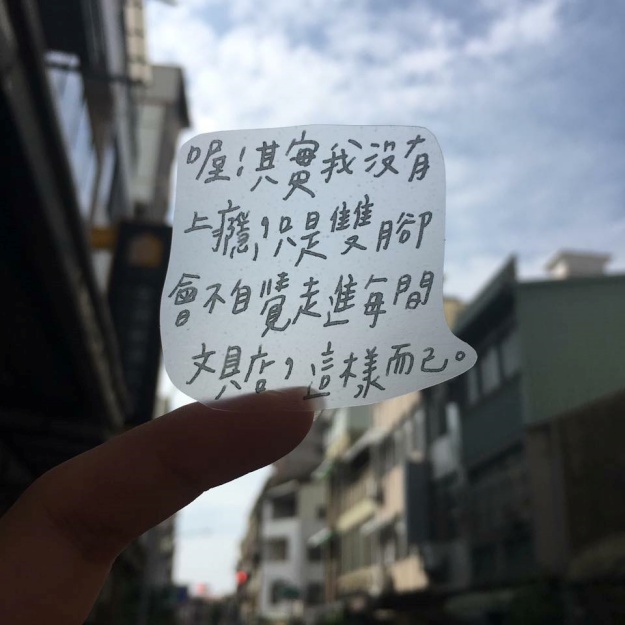 喔！其實我沒有
上癮，只是雙腳
會不自覺走進每間
文具店，這樣而已。